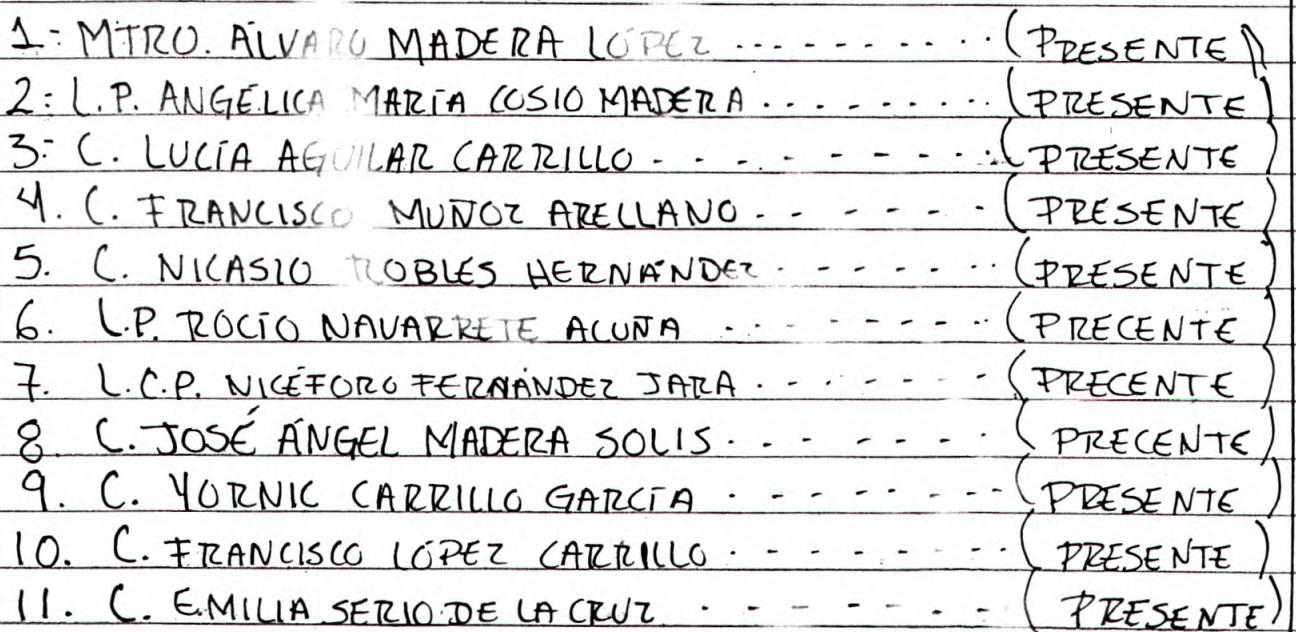 1: MTRO. ÁLVARO MADERA LÓPEZ ... - - - - - - - · · (PRESENTE)
2: L.P. ANGÉLICA MARÍA COSIO MADERA . . . - - - - - · · (PRESENTE)
3: C. LUCÍA AGUILAR CARRILLO - - - - - - - - · · (PRESENTE)
4. C. FRANCISCO MUÑOZ ARELLANO - - - - - - · (PRESENTE)
5. C. NICASIO ROBLES HERNÁNDEZ - - - - - - · · (PRESENTE)
6. L.P. ROCÍO NAVARRETE ACUÑA · - - - - - - · · (PRECENTE)
7. L.C.P. NICÉFORO FERNÁNDEZ JARA · - - - - - - (PRECENTE)
8 C. JOSÉ ÁNGEL MADERA SOLIS · - - - - - - (PRECENTE)
9. C. YORNIC CARRILLO GARCÍA · - - - - - - - (PRESENTE)
10. C. FRANCISCO LÓPEZ CARRILLO · - - - - - - · (PRESENTE)
11. C. EMILIA SERIO DE LA CRUZ · - - - - - - (PRESENTE)